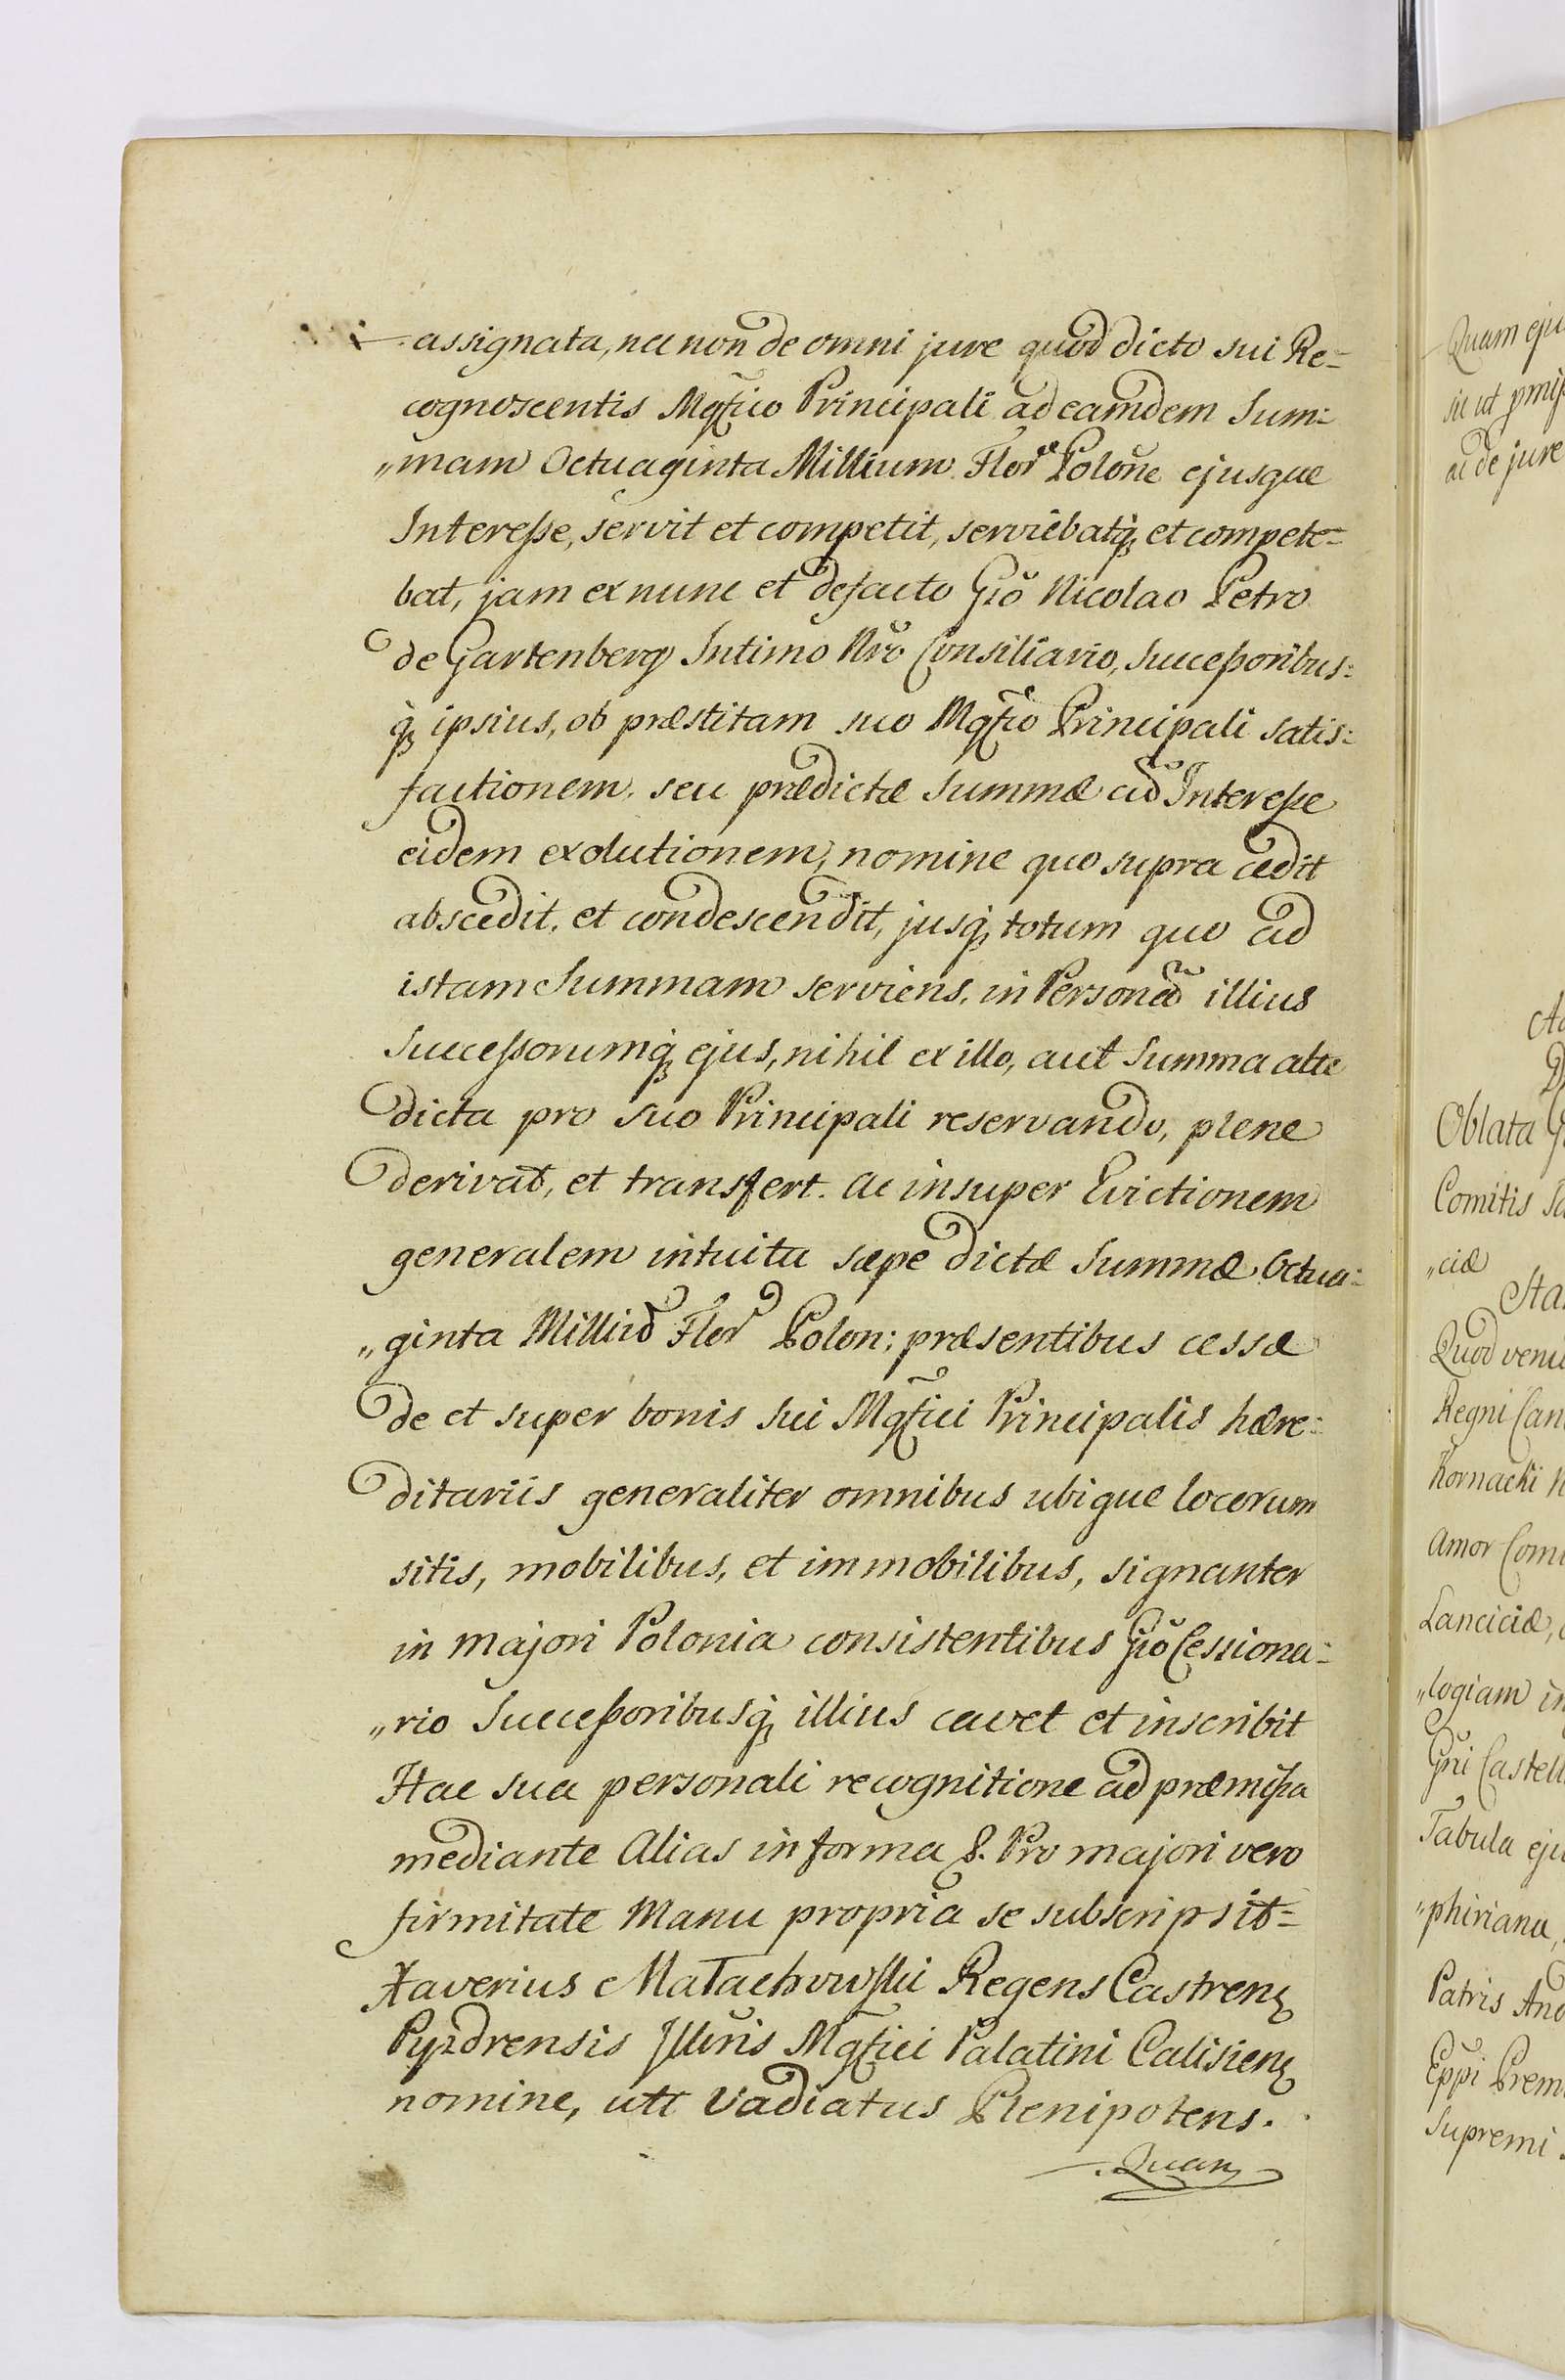 assignata, nec non de omni jure quod dicto sui Re=
cognoscentis Mgfico Principali ad eamdem Sum=
„mam Octuaginta Millium Flor Polone ejusque
Interesse, servit et competit, serviebatq, et compete=
bat, jam ex nunc et defacto Gio Nicolao Petro
de Gartenberg Intimo Nro Consiliario, Successoribus=
q, ipsius, ob præstitam suo Mgfico Principali satis=
factionem, seu prædictæ Summæ ad Interesse
eidem exolutionem, nomine quo supra cedit
abscedit, et condescendit, jusq, totum quo ad
istam Summam serviens, in Persona illius
Successorumq, ejus, nihil ex illo, aut Summa alte
dicta pro suo Principali reservando, plene
derivat, et transfert. Ac insuper Evictionem
generalem intuitu sæpe dictæ Summæ Octua=
„ginta Milliu Flor Polon: præsentibus cessæ
de et super bonis sui Mgfici Principalis hære=
ditariis generaliter omnibus ubique locorum
sitis, mobilibus, et immobilibus, signanter
in majori Polonia consistentibus Gio Cessiona=
„rio Successoribusq, illius cavet et inscribit
Hac sua personali recognitione ad præmissa
mediante Alias in forma &. Pro majori vero
firmitate Manu propria se subscripsit=
Xaverius Małachowski Regens Castren
Pyzdrensis Illuris Mgfici Palatini Calisien
nomine, uti Vadiatus Plenipotens.
Quam
Quam eju
sic ut pmiss
ac de jure
Oblata
Comitis
„ciæ
Sta
Quod veni
Regni Can
Kornacki
Amor Com
Lanciciæ,
„logiam in
Gni Castell
Tabula eju
„phiriana,
Patris And
Eppi Prem
Supremi